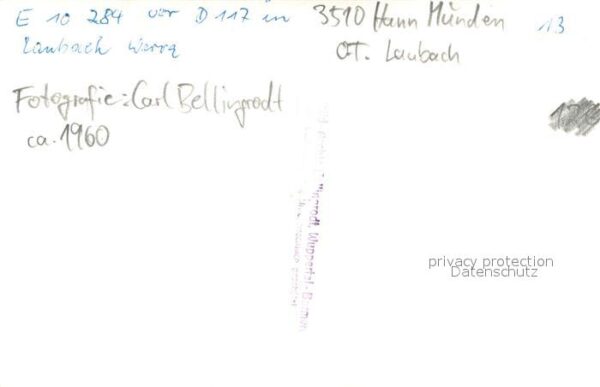 E 10 284 vor D 117 in
Laubach Werra
3510 Hann Münden
OT. Laubach
13
Fotografie: Carl Bellingrodt
ca. 1960
Wuppertal-Barmen
privacy protection
Datenschutz